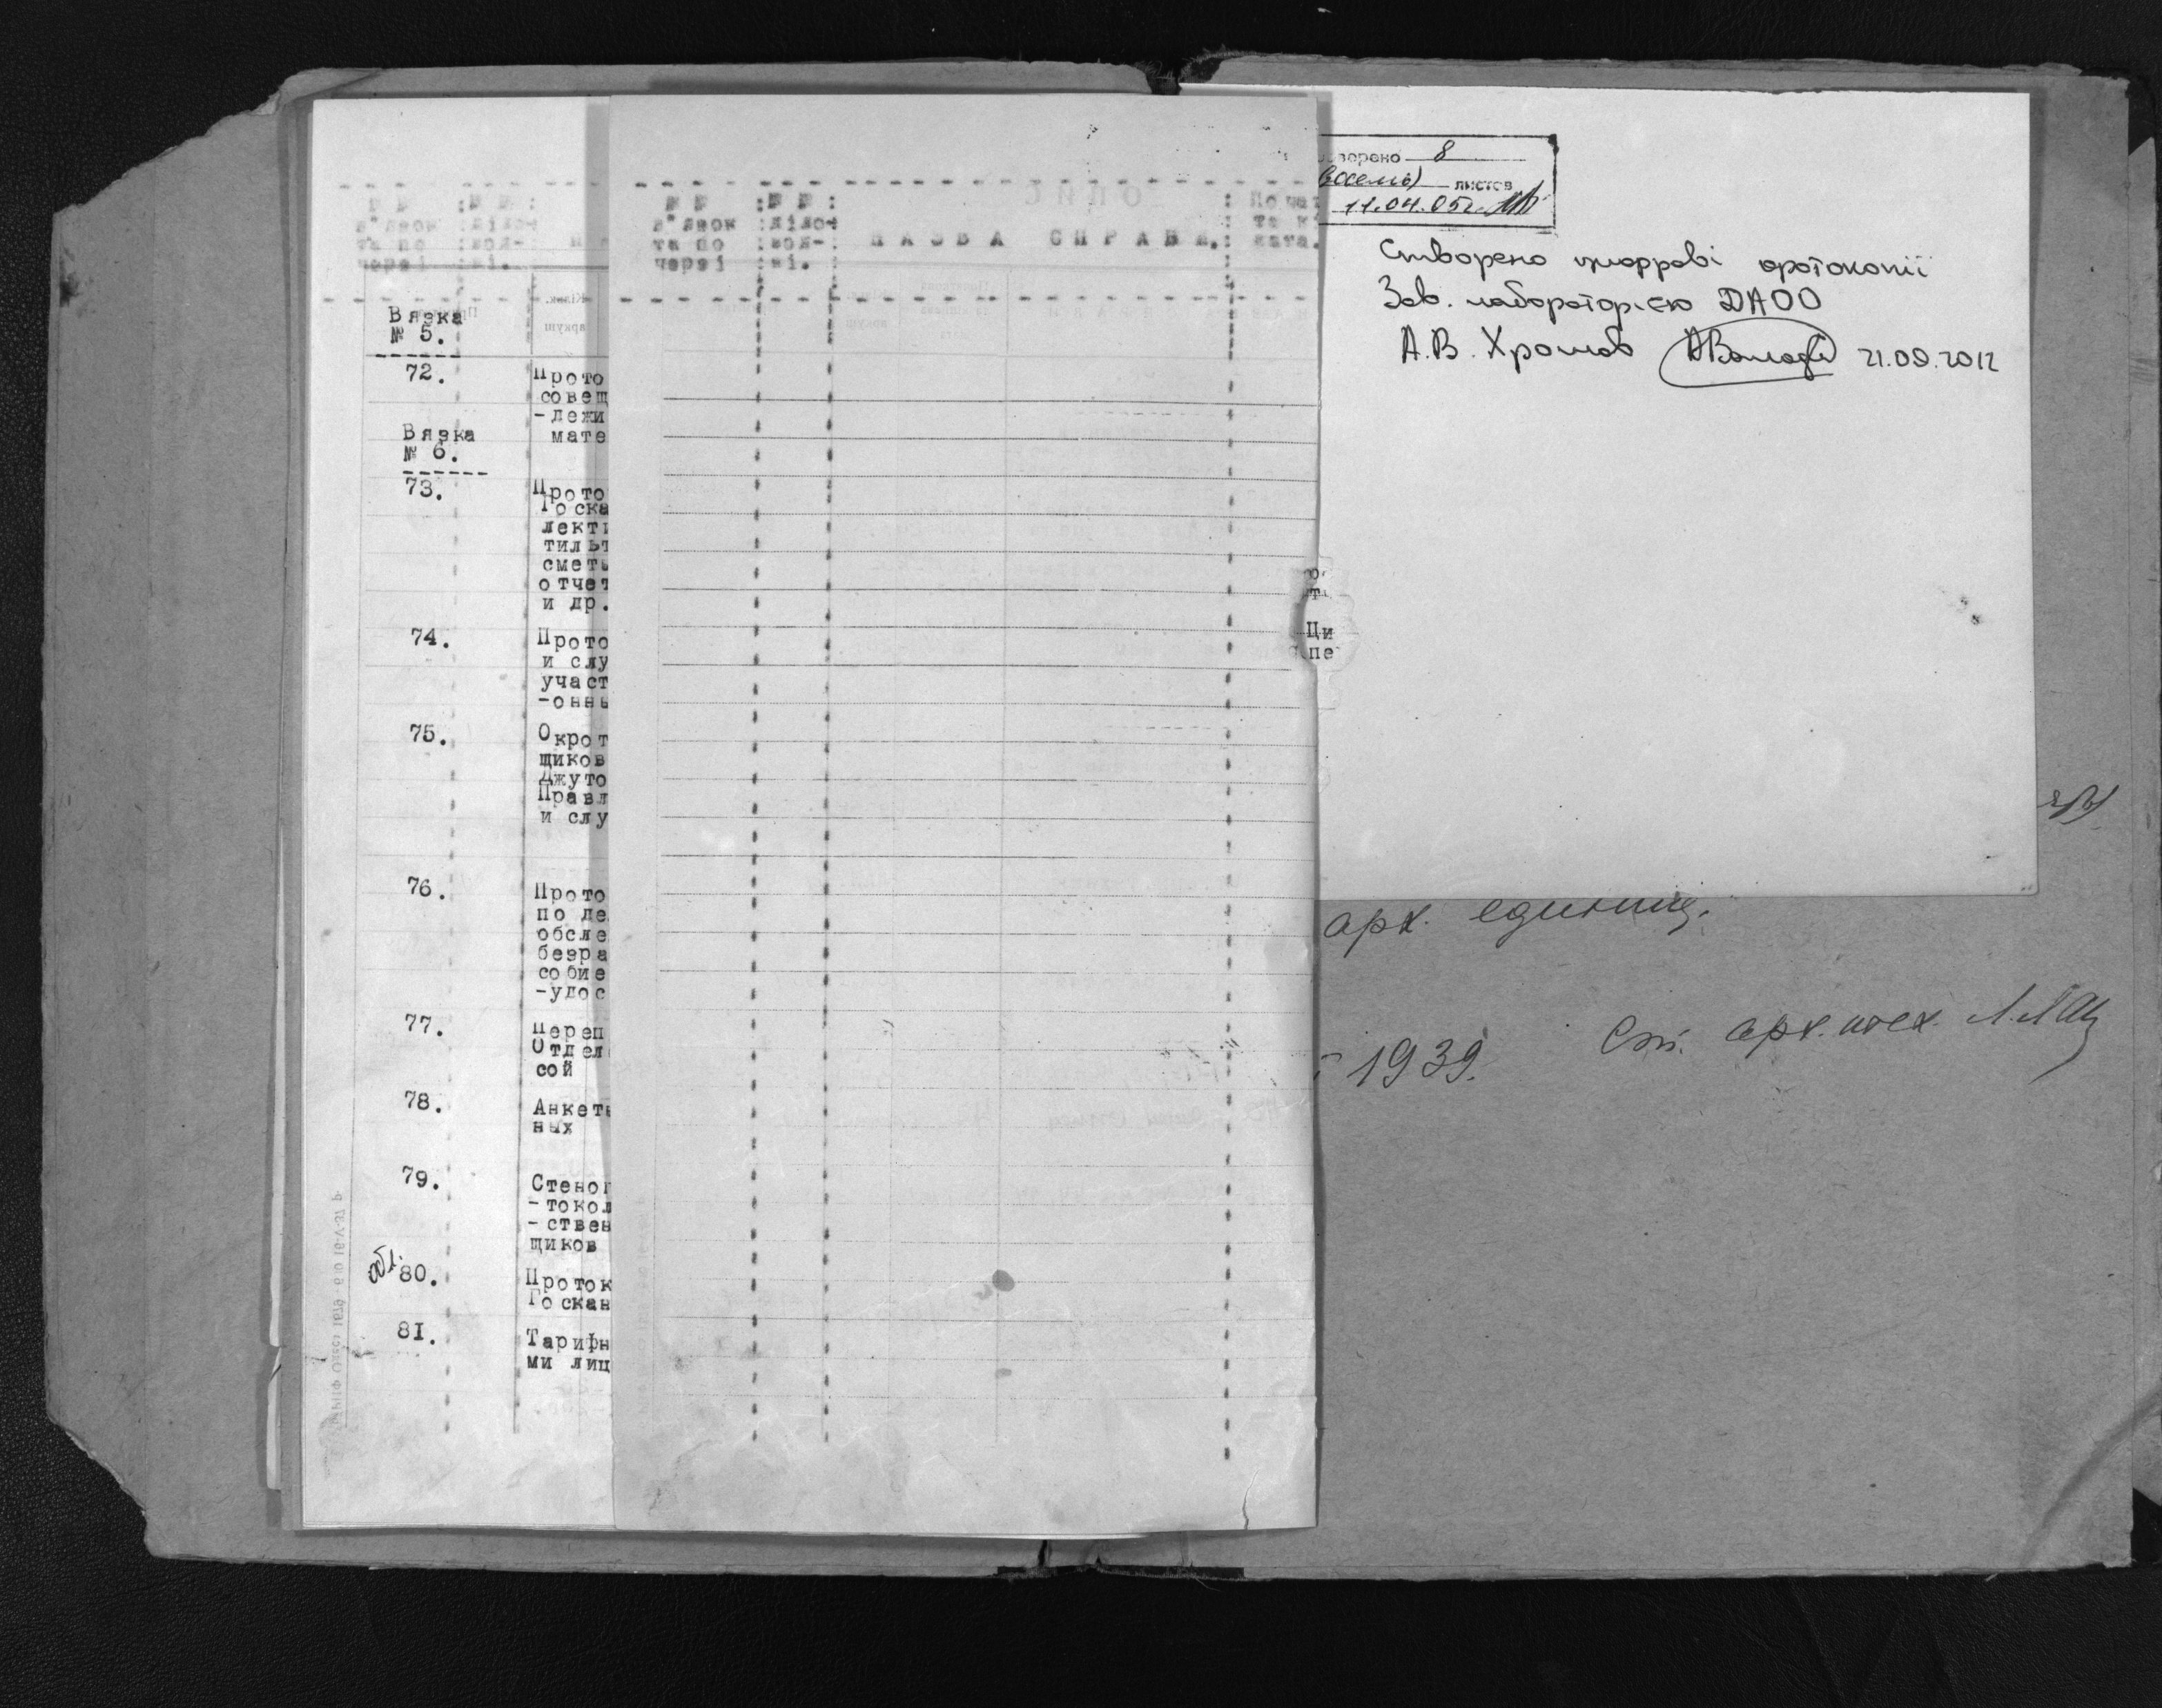 № №
в'язок
та по
черзі
№ №
діло-
вод-
ні.
Н
Вязка
№ 5.
72.
Прото
совещ
-лежи
мате
Вязка
№ 6.
73.
Прото
Госка
лекти
тильт
сметы
отчет
и др.
74.
Прото
и слу
участ
-онны
75.
Окрот
щиков
Джуто
Правл
и слу
76.
Прото
по де
обсле
безра
собие
-удос
77.
Переп
Отдел
сой
78.
Анкеты
ных
79.
Стеног
-токол
-ствен
щиков
80.
Проток
Госкан
81.
Тарифн
ми лиц
ОПИС
№ №
в'язок
та по
черзі
№ №
діло-
вод-
ні.
НАЗВА СПРАВИ.
Почат
та кі
дата.
Ци
пе
8
(восемь) листов
11.04.05г.
Створено цифрові фотокопії
Зав. лабораторією ДАОО
А.В. Хромов 21.09.2012
арх. единиц.
1939.
Ст. арх. тех.